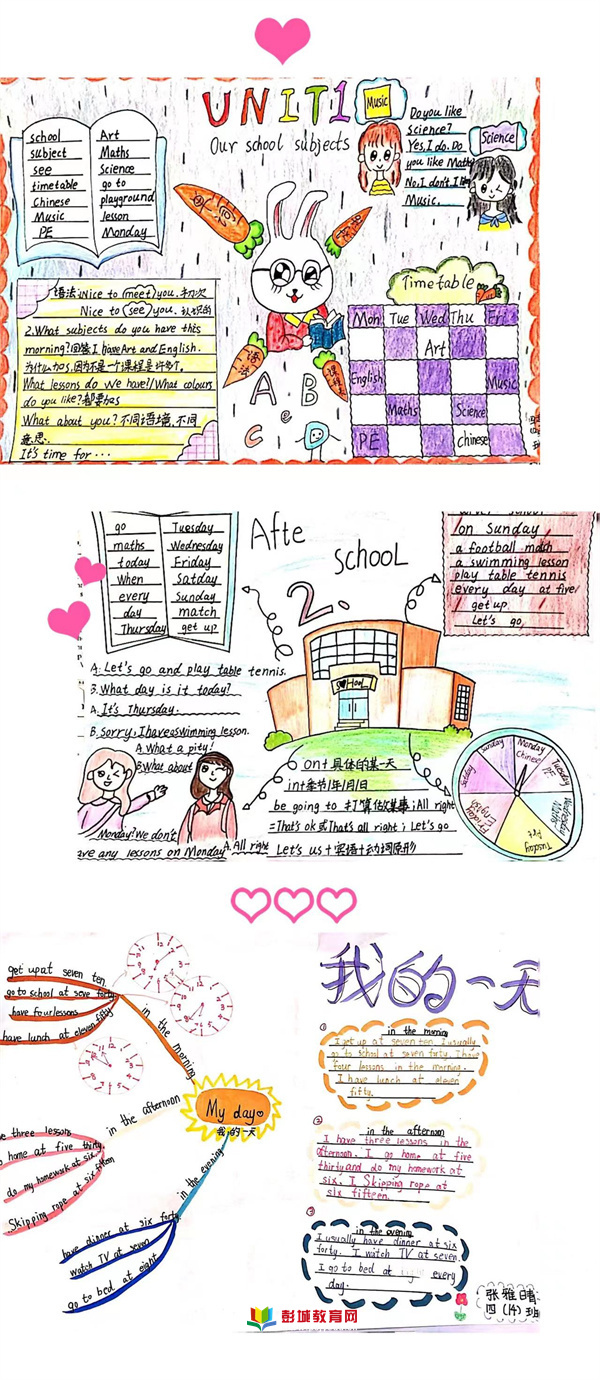 UNIT1
Our school subjects
Music
Do you like
science?
Yes,I do. Do
you like Maths
No,I don't.I like
Music.
Science
school
subject
see
timetable
Chinese
Music
PE
Art
Maths
Science
go to
playground
lesson
Monday
语法:Nice to meet you.初次
Nice to see you.认识的
2.What subjects do you have this
morning?回答I have Art and English.
为什么加s,因为不是一个课程是许多个。
What lessons do we have?/What colours
do you like?都要加s
What about you?不同语境,不同
意思.
It's time for ···
语法
A B
C e D
Timetable
Mon Tue Wed Thu Fri
Art
English Music
Maths Science
PE Chinese
go
maths
today
When
every
day
Thursday
Tuesday
Wednesday
Friday
Satday
Sunday
match
get up
Afte
SCHOOL
2.
on Sunday
a football match
a swimming lesson
play table tennis
every day at five/
get up
Let's go,
A:Let's go and play table tennis.
B.What day is it today?
A.It's Thursday.
B.Sorry,I have a swimming lesson.
A.What a pity!
B.What about
Monday!We don't
ave any lessons on Monday A.All right
SCHOOL
on+具体的某一天
in+季节/年/月/日
be going to 打算做某事;All right
=That's ok或That's all right;Let's go
Let's us+宾语+动词原形
Sunday
Monday
Chinese
Tuesday
PE
Wednesday
Maths
Tuesday
Art
Friday
English
get up at seven ten.
go to school at seve forty.
have four lessons
have lunch at eleven fifty
in the morning
My day
我的一天
in the afternoon
e three lessons
o home at five thirty.
do my homework at six.
Skipping rope at six fifteen
in the evening
have dinner at six forty.
watch TV at seven
go to bed at eight
我的一天
①
in the morning
I get up at seven ten. I usually
go to school at seven forty. I have
four lessons in the morning.
I have lunch at eleven
fifty.
②
in the afternoon
I have three lessons in the
afternoon. I go home at five
thirty and do my homework at
six. I Skipping rope at
six fifteen.
③
in the evening
I usually have dinner at six
forty. I watch TV at seven.
I go to bed at eight every
day.
张雅晴
四(14)班
彭城教育网